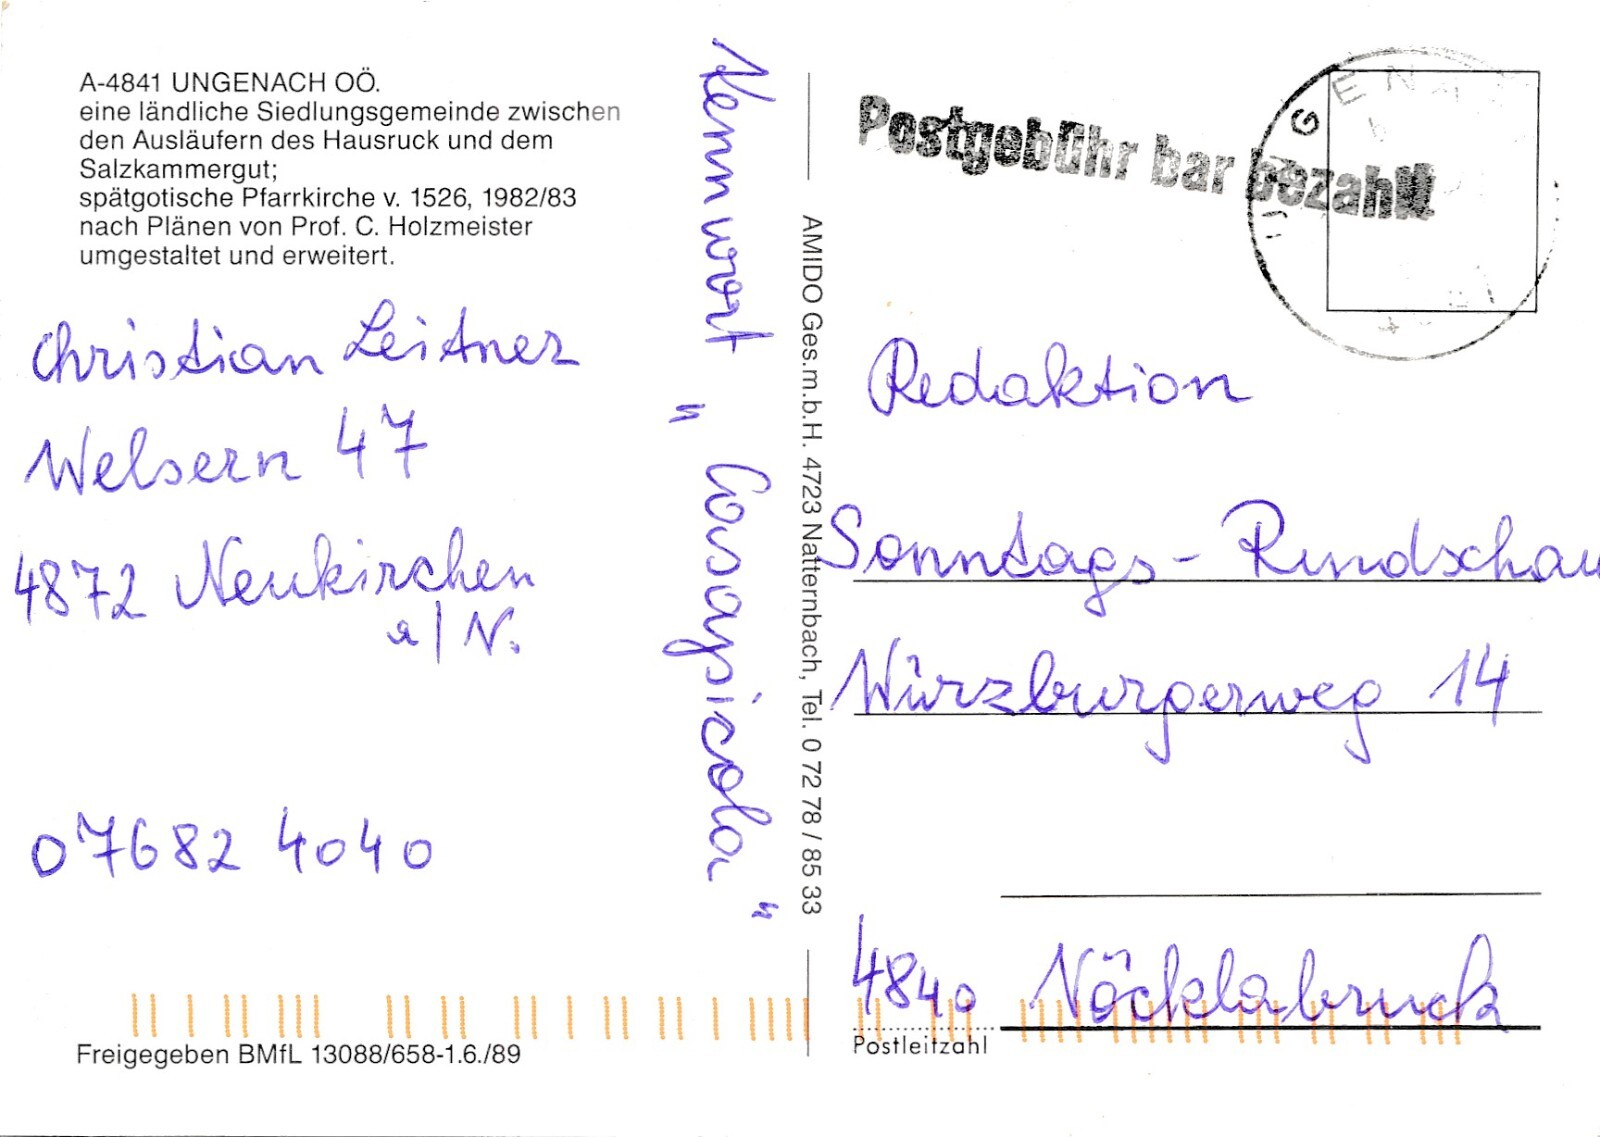 A-4841 UNGENACH OÖ.
eine ländliche Siedlungsgemeinde zwischen
den Ausläufern des Hausruck und dem
Salzkammergut;
spätgotische Pfarrkirche v. 1526, 1982/83
nach Plänen von Prof. C. Holzmeister
umgestaltet und erweitert.
Christian Leitner
Welsern 47
4872 Neukirchen
a/N.
07682 4040
Freigegeben BMfL 13088/658-1.6./89
Kennwort "Casapicola"
AMIDO Ges.m.b.H. 4723 Natternbach, Tel. 0 72 78 / 85 33
Postgebühr bar bezahlt
UNGENA
Redaktion
Sonntags-Rundschau
Würzburgerweg 14
4840 Vöcklabruck
Postleitzahl